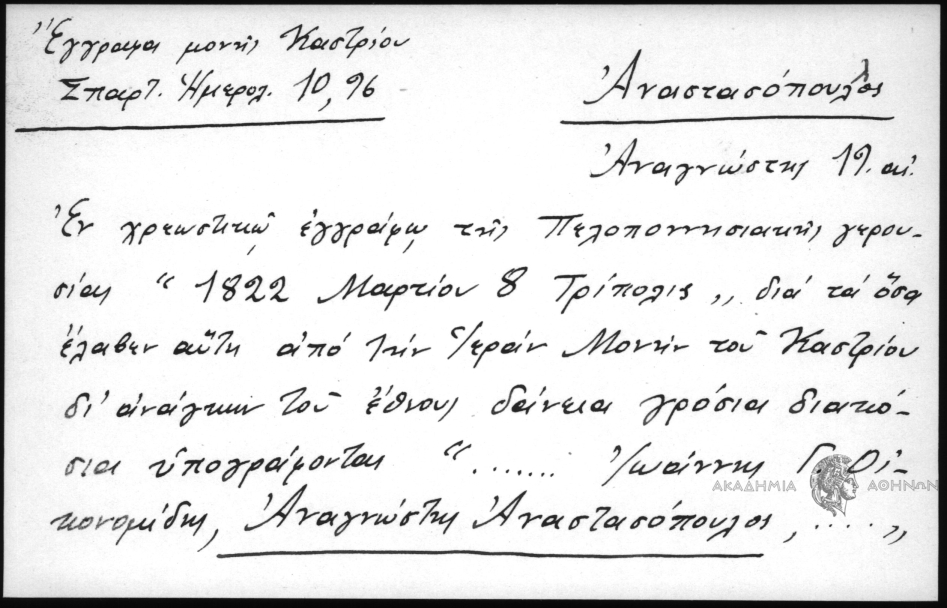 Ἔγγραφα μονῆς Καστρίου
Σπαρτ. Ἡμερολ. 10, 96
Ἀναστασόπουλος
Ἀναγνώστης 19. αἰ.
Ἐν χρεωστικῷ ἐγγράφῳ τῆς Πελοποννησιακῆς γερου-
σίας “ 1822 Μαρτίου 8 Τρίπολις ,, διά τά ὅσα
ἔλαβεν αὕτη ἀπό τήν Ἱεράν Μονήν τοῦ Καστρίου
δι' ἀνάγκην τοῦ ἔθνους δάνεια γρόσια διακό-
σια ὑπογράφονται “ ....... Ἰωάννης Γ. Οἰ-
κονομίδης, Ἀναγνώστης Ἀναστασόπουλος, ..... ,,
ΑΚΑΔΗΜΙΑ ΑΘΗΝΩΝ